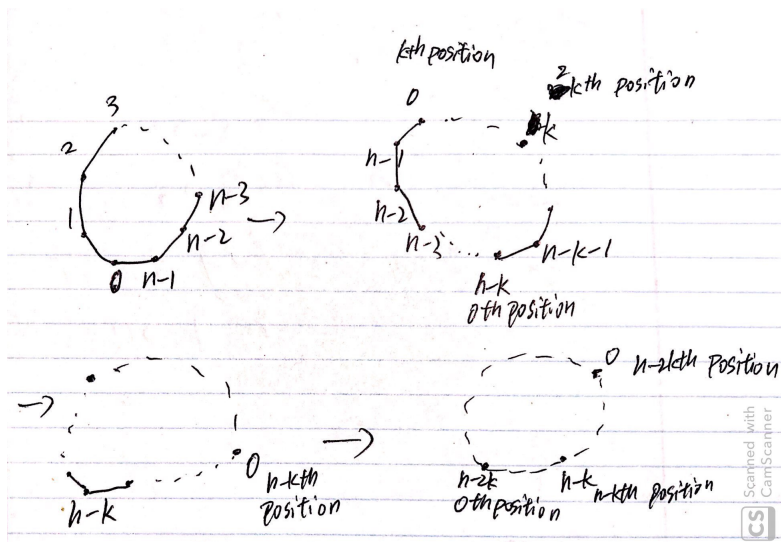 kth position
0
2kth position
k
3
2
1
0
n-1
n-2
n-3
n-1
n-2
n-3
n-k
0th position
n-k-1
0
n-kth
position
n-k
0
n-2kth position
n-2k
0th position
n-k
n-kth position
CS Scanned with
CamScanner